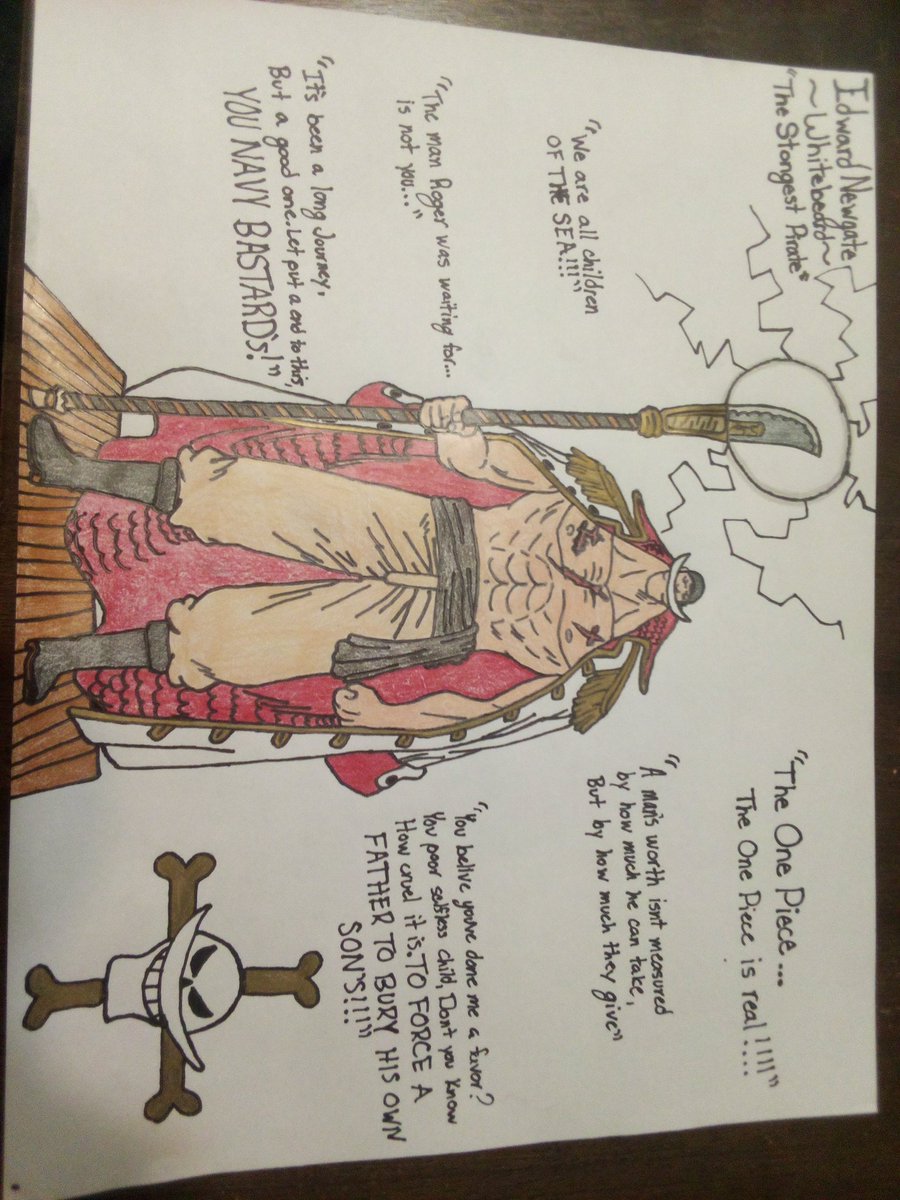 Edward Newgate
~Whitebeard~
"The Stongest Pirate"
"We are all children
OF THE SEA!!!"
"The man Roger was waiting for...
is not you..."
"It's been a long Journey,
But a good one. Let put a end to this,
YOU NAVY BASTARD'S!"
"The One Piece...
The One Piece is real!!!!"
"A man's worth isnt measured
by how much he can take,
But by how much they give"
"You belive you've done me a favor?
You poor selfless child, Don't you know
How cruel it is. TO FORCE A
FATHER TO BURY HIS OWN
SON'S?!!!"